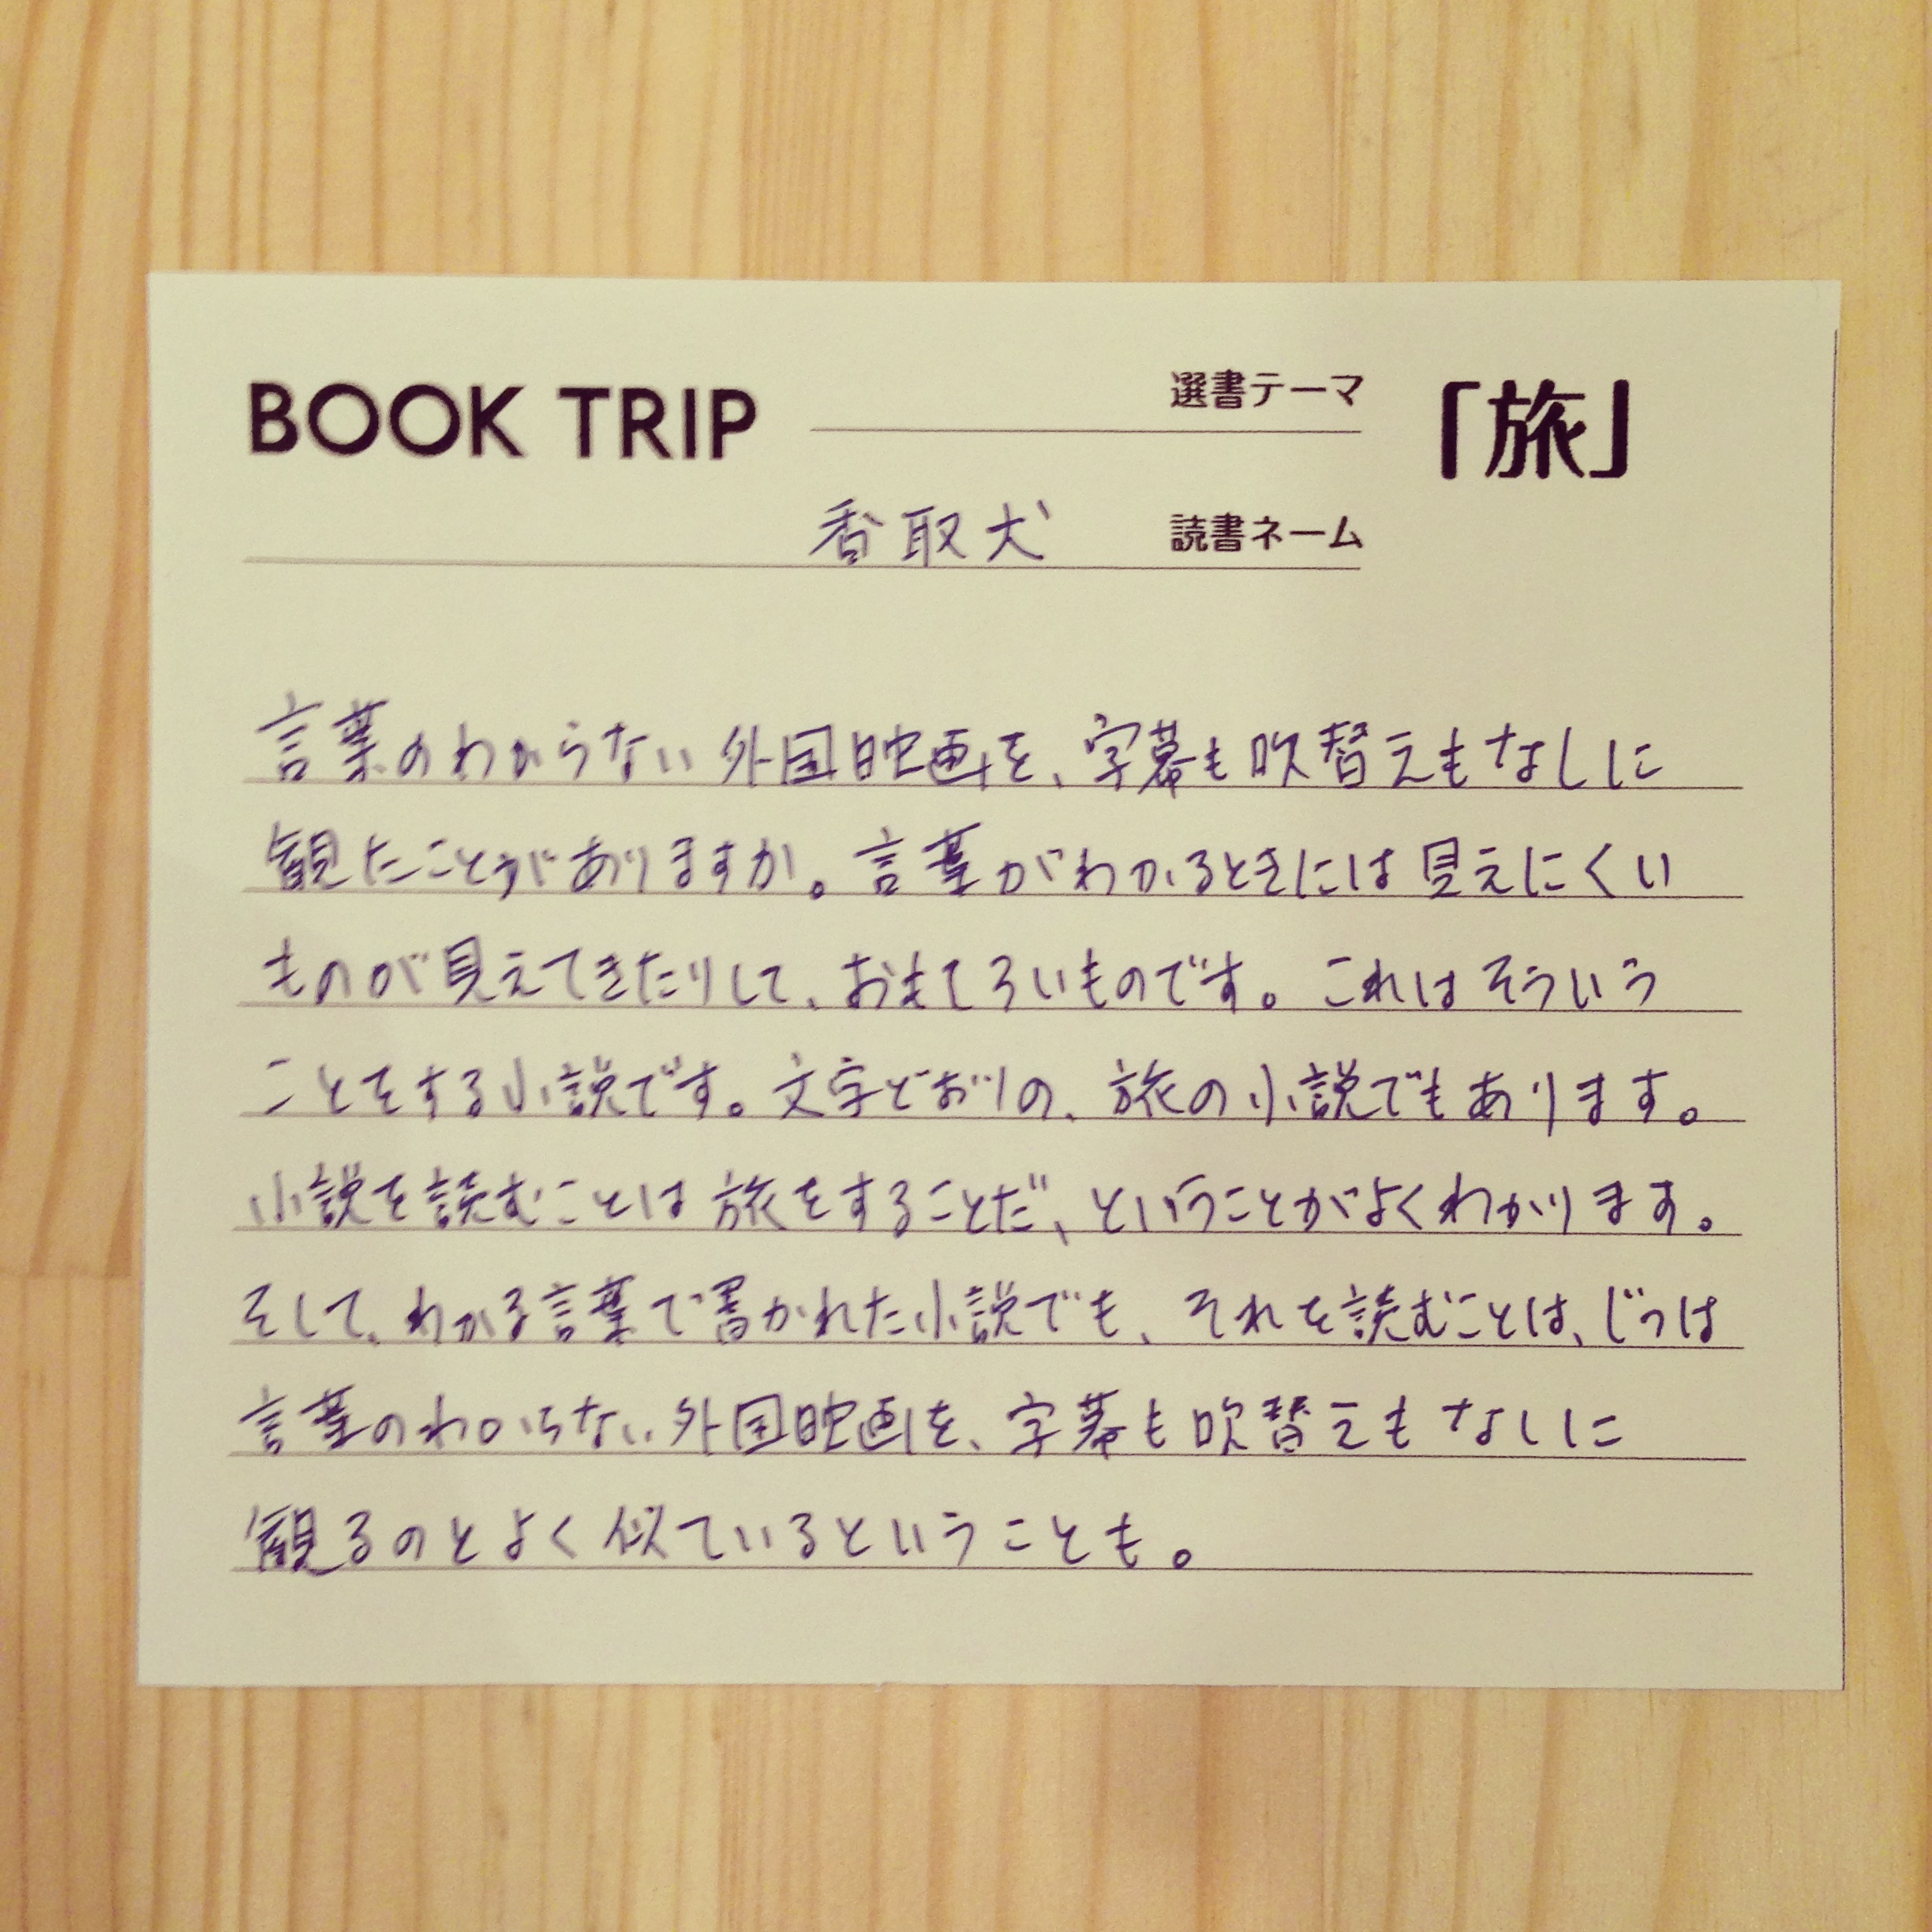 BOOK TRIP 選書テーマ 「旅」
香取犬 読書ネーム
言葉のわからない外国映画を、字幕も吹替えもなしに
観たことがありますか。言葉がわかるときには見えにくい
ものが見えてきたりして、おもしろいものです。これはそういう
ことをする小説です。文字どおりの、旅の小説でもあります。
小説を読むことは旅をすることだ、ということがよくわかります。
そして、わかる言葉で書かれた小説でも、それを読むことは、じつは
言葉のわからない外国映画を、字幕も吹替えもなしに
観るのとよく似ているということも。